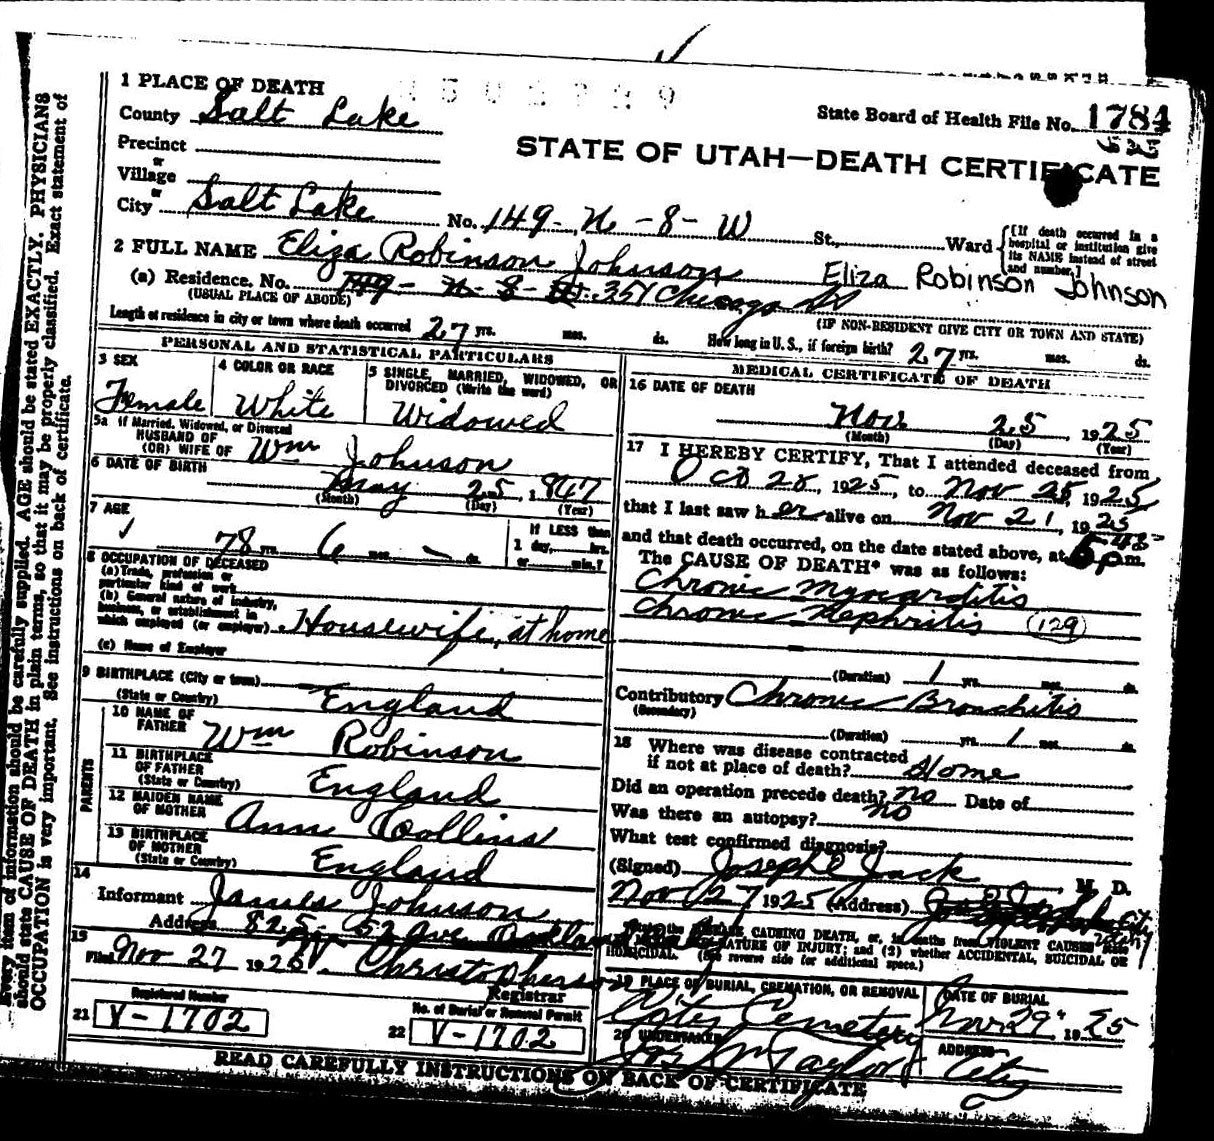 1 PLACE OF DEATH
County Salt Lake
State Board of Health File No. 1784
Precinct
or
Village
or
City Salt Lake No. 149-N-8-W St., Ward
STATE OF UTAH—DEATH CERTIFICATE
[If death occurred in a hospital or institution give its NAME instead of street and number.]
2 FULL NAME Eliza Robinson Johnson Eliza Robinson Johnson
(a) Residence. No. 149-N-8-W 351 Chicago St
(USUAL PLACE OF ABODE) (IF NON-RESIDENT GIVE CITY OR TOWN AND STATE)
Length of residence in city or town where death occurred 27 yrs. mos. ds. How long in U. S., if foreign birth? 27 yrs. mos. ds.
PERSONAL AND STATISTICAL PARTICULARS
3 SEX
Female
4 COLOR OR RACE
White
5 SINGLE, MARRIED, WIDOWED, OR DIVORCED (Write the word)
Widowed
5a If Married, Widowed, or Divorced
HUSBAND OF
(OR) WIFE OF Wm Johnson
6 DATE OF BIRTH
May 25, 1847
(Month) (Day) (Year)
7 AGE
78 yrs. 6 mos. — ds.
If LESS than
1 day, hrs.
or min.?
8 OCCUPATION OF DECEASED
(a) Trade, profession or
particular kind of work
(b) General nature of industry,
business, or establishment in
which employed (or employer) Housewife, at home
(c) Name of Employer
9 BIRTHPLACE (City or town)
(State or Country) England
PARENTS
10 NAME OF
FATHER Wm Robinson
11 BIRTHPLACE
OF FATHER
(State or Country) England
12 MAIDEN NAME
OF MOTHER Ann Collins
13 BIRTHPLACE
OF MOTHER
(State or Country) England
14
Informant James Johnson
Address 825 - 52 Ave Oakland
15
Filed Nov 27 1925 Christopherson
Registrar
Registered Number
21 V-1702
No. of Burial or Removal Permit
22 V-1702
MEDICAL CERTIFICATE OF DEATH
16 DATE OF DEATH
Nov 25, 1925
(Month) (Day) (Year)
17 I HEREBY CERTIFY, That I attended deceased from
Oct 28, 1925, to Nov 25, 1925
that I last saw her alive on Nov 21, 1925
and that death occurred, on the date stated above, at 5 45 pm.
The CAUSE OF DEATH* was as follows:
Chronic Myocarditis
Chronic Nephritis (129)
(Duration) 1 yrs. mos. ds.
Contributory Chronic Bronchitis
(Secondary)
(Duration) yrs. 1 mos. ds.
18 Where was disease contracted
if not at place of death? Home
Did an operation precede death? no Date of
Was there an autopsy? no
What test confirmed diagnosis?
(Signed) Joseph E Jack, M. D.
Nov 27 1925 (Address) City
CAUSING DEATH, or, in deaths from VIOLENT CAUSES
NATURE OF INJURY; and (2) whether ACCIDENTAL, SUICIDAL OR
HOMICIDAL. (See reverse side for additional space.)
19 PLACE OF BURIAL, CREMATION, OR REMOVAL
City Cemetery
DATE OF BURIAL
Nov. 29, 1925
20 UNDERTAKER
Jos Wm Taylor
ADDRESS
City
READ CAREFULLY INSTRUCTIONS ON BACK OF CERTIFICATE
Every item of information should be carefully supplied. AGE should be stated EXACTLY. PHYSICIANS
should state CAUSE OF DEATH in plain terms, so that it may be properly classified. Exact statement of
OCCUPATION is very important. See instructions on back of certificate.